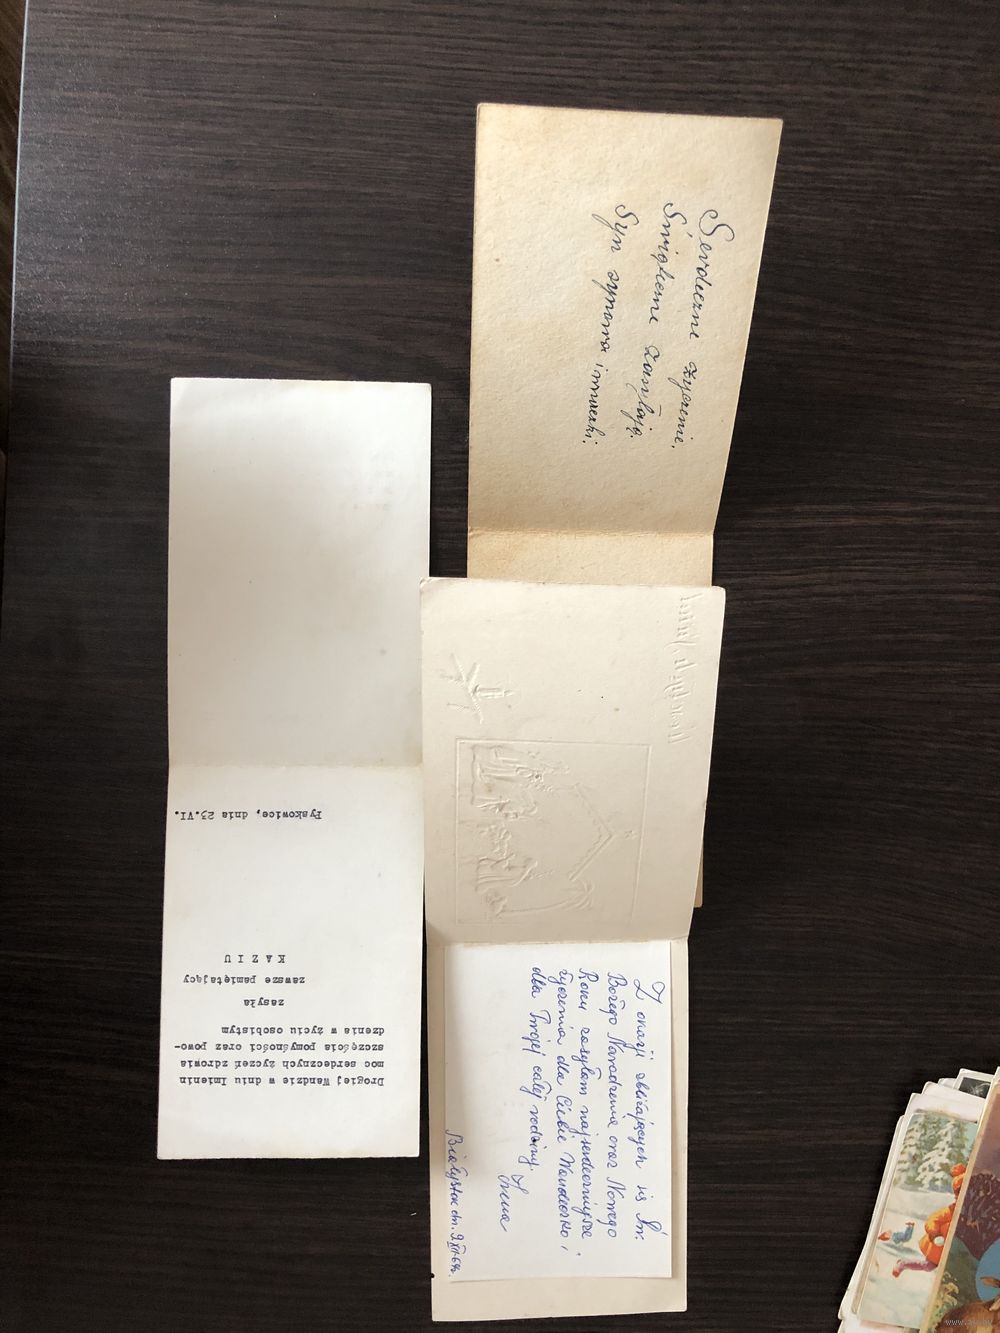 Serdeczne życzenie.
Świąteczne zasyłają.
Syn synowa i wnuczki.
Pyskowice, dnia 23.VI.
Drogiej Wandzie w dniu Imienin
moc serdecznych życzeń zdrowia
szczęścia pomyśności oraz powo-
dzenia w życiu osobistym
zasyła
zawsze pamiętający
K A Z I U
Z okazji zbliżających się Św.
Bożego Narodzenia oraz Nowego
Roku zasyłam najserdeczniejsze
życzenia dla Ciebie Wandeczko i
dla Twojej całej rodziny.
Irena
Białystok dn. 9 XII 64r.